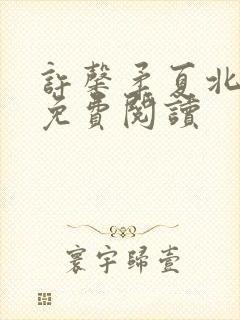 許馨矛夏北
免費閱讀
寰宇歸壹